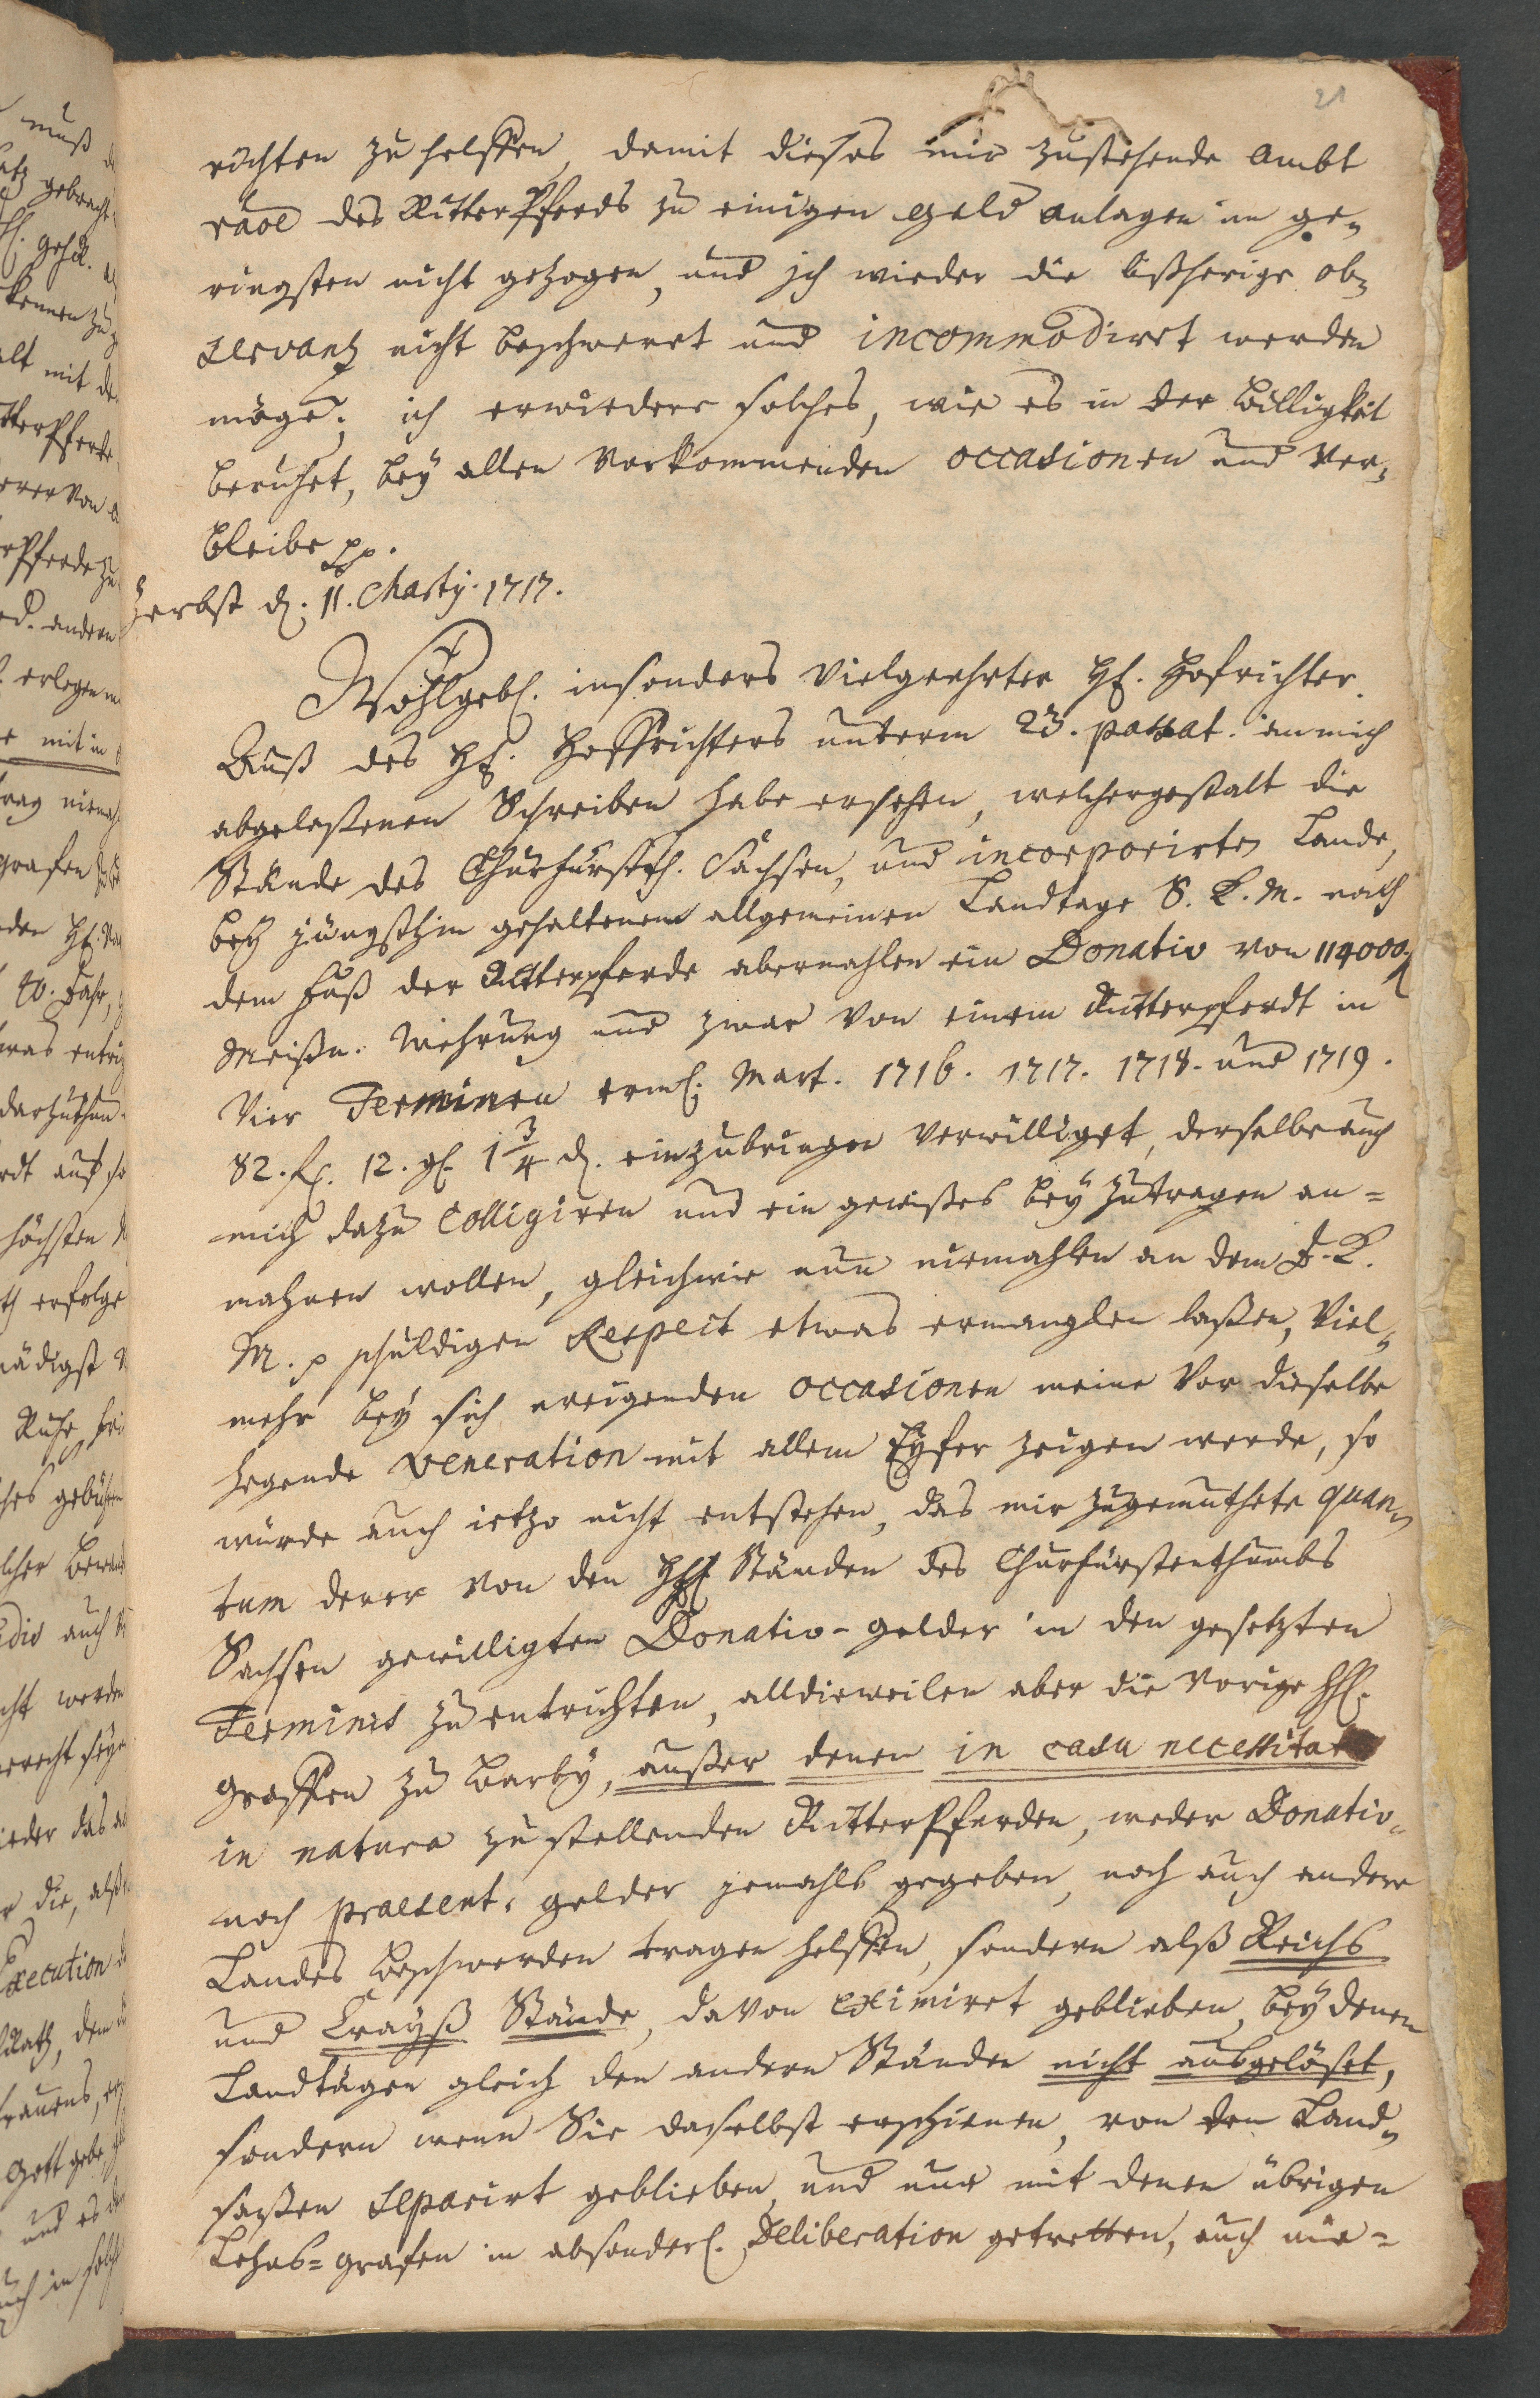 21
richten zu helffen, damit dieses mir zustehende Ambt
des RitterPferds zu einigen geld anlagen im ge-
ringsten nicht gezogen, und ich wieder die bißherige ob-
servantz nicht beschweret und incommodiret werden
möge; ich erwiedere solches, wie es in der Billigkeit
beruhet, bey allen vorkommenden occasionen und ver-
bleibe pp.
Zerbst d. 11. Martij. 1717.
Wohlgebl. insonders Vielgeehrter H. Hofrichter.
Auß des H. Hoffrichters unterm 23. passat. an mich
abgelaßenen Schreiben habe ersehen, welchergestalt die
Stände des Churfürstth. Sachsen, und incorporirten Lande,
bey jüngsthin gehaltenem allgemeinen Landtage S. K. M. nach
dem Fuß der Ritterpferde abermahlen ein Donativ von 114000 f
Meißn. Wehrung und zwar von einem Ritterpferdt in
Vier Terminen Mart. 1716. 1717. 1718. und 1719.
82. f. 12. gl. 1 3/4 d. einzubringen verwilliget, derselbe auch
mich dazu colligiren und ein gewißes bey zutragen an=
mahnen wollen, gleichwie nun niemahlen an dem S. K.
M. p schuldigen Respect etwas ermanglen laßen, Viel-
mehr bey sich ereigenden occasionen meine vor dieselbe
hegende veneration mit allem Eyfer zeigen werde, so
würde auch ietzo nicht entstehen, das mir zugemuthete quan-
tum derer von den HH Ständen des Churfürstenthumbs
Sachsen gewilligten Donativ-gelder in den gesetzten
Terminis zu entrichten, alldieweilen aber die vorige HH.
Graffen zu Barby, außer denen in casu necessitat
in natura zu stellenden RitterPferden, weder Donativ-
noch praesent-gelder jemahls gegeben, noch auch andere
Landes Beschwerden tragen helffen, sondern alß Reichs
und Crayß Stände, davon eximiret geblieben, bey denen
Landtägen gleich den andern Ständen nicht außgelöset,
sondern wenn Sie daselbst erschienen, von den Land-
saßen separirt geblieben, und nur mit denen übrigen
Lehns=grafen in absonderl. Deliberation getretten, auch nie=